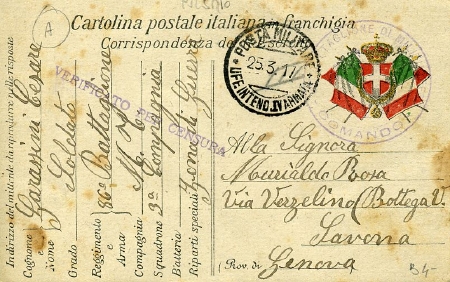 A
Cartolina postale italiana in franchigia
Corrispondenza del R. Esercito
POSTA MILITARE
25.3.17
UFF. INTEND. IV ARMATA
VERIFICATO PER CENSURA
COMANDO
Indirizzo del militare da riprodurre nelle risposte
Cognome e Nome Garassini Cesare
Grado Soldato
Reggimento 86º Battaglione
Arma M. T.
Compagnia
Squadrone 3ª Compagnia
Batteria
Riparti speciali Zona di Guerra
Alla Signora
Murialdo Rosa
Via Verzelino (Bottega V.
Savona
(Prov. di Genova
B4-